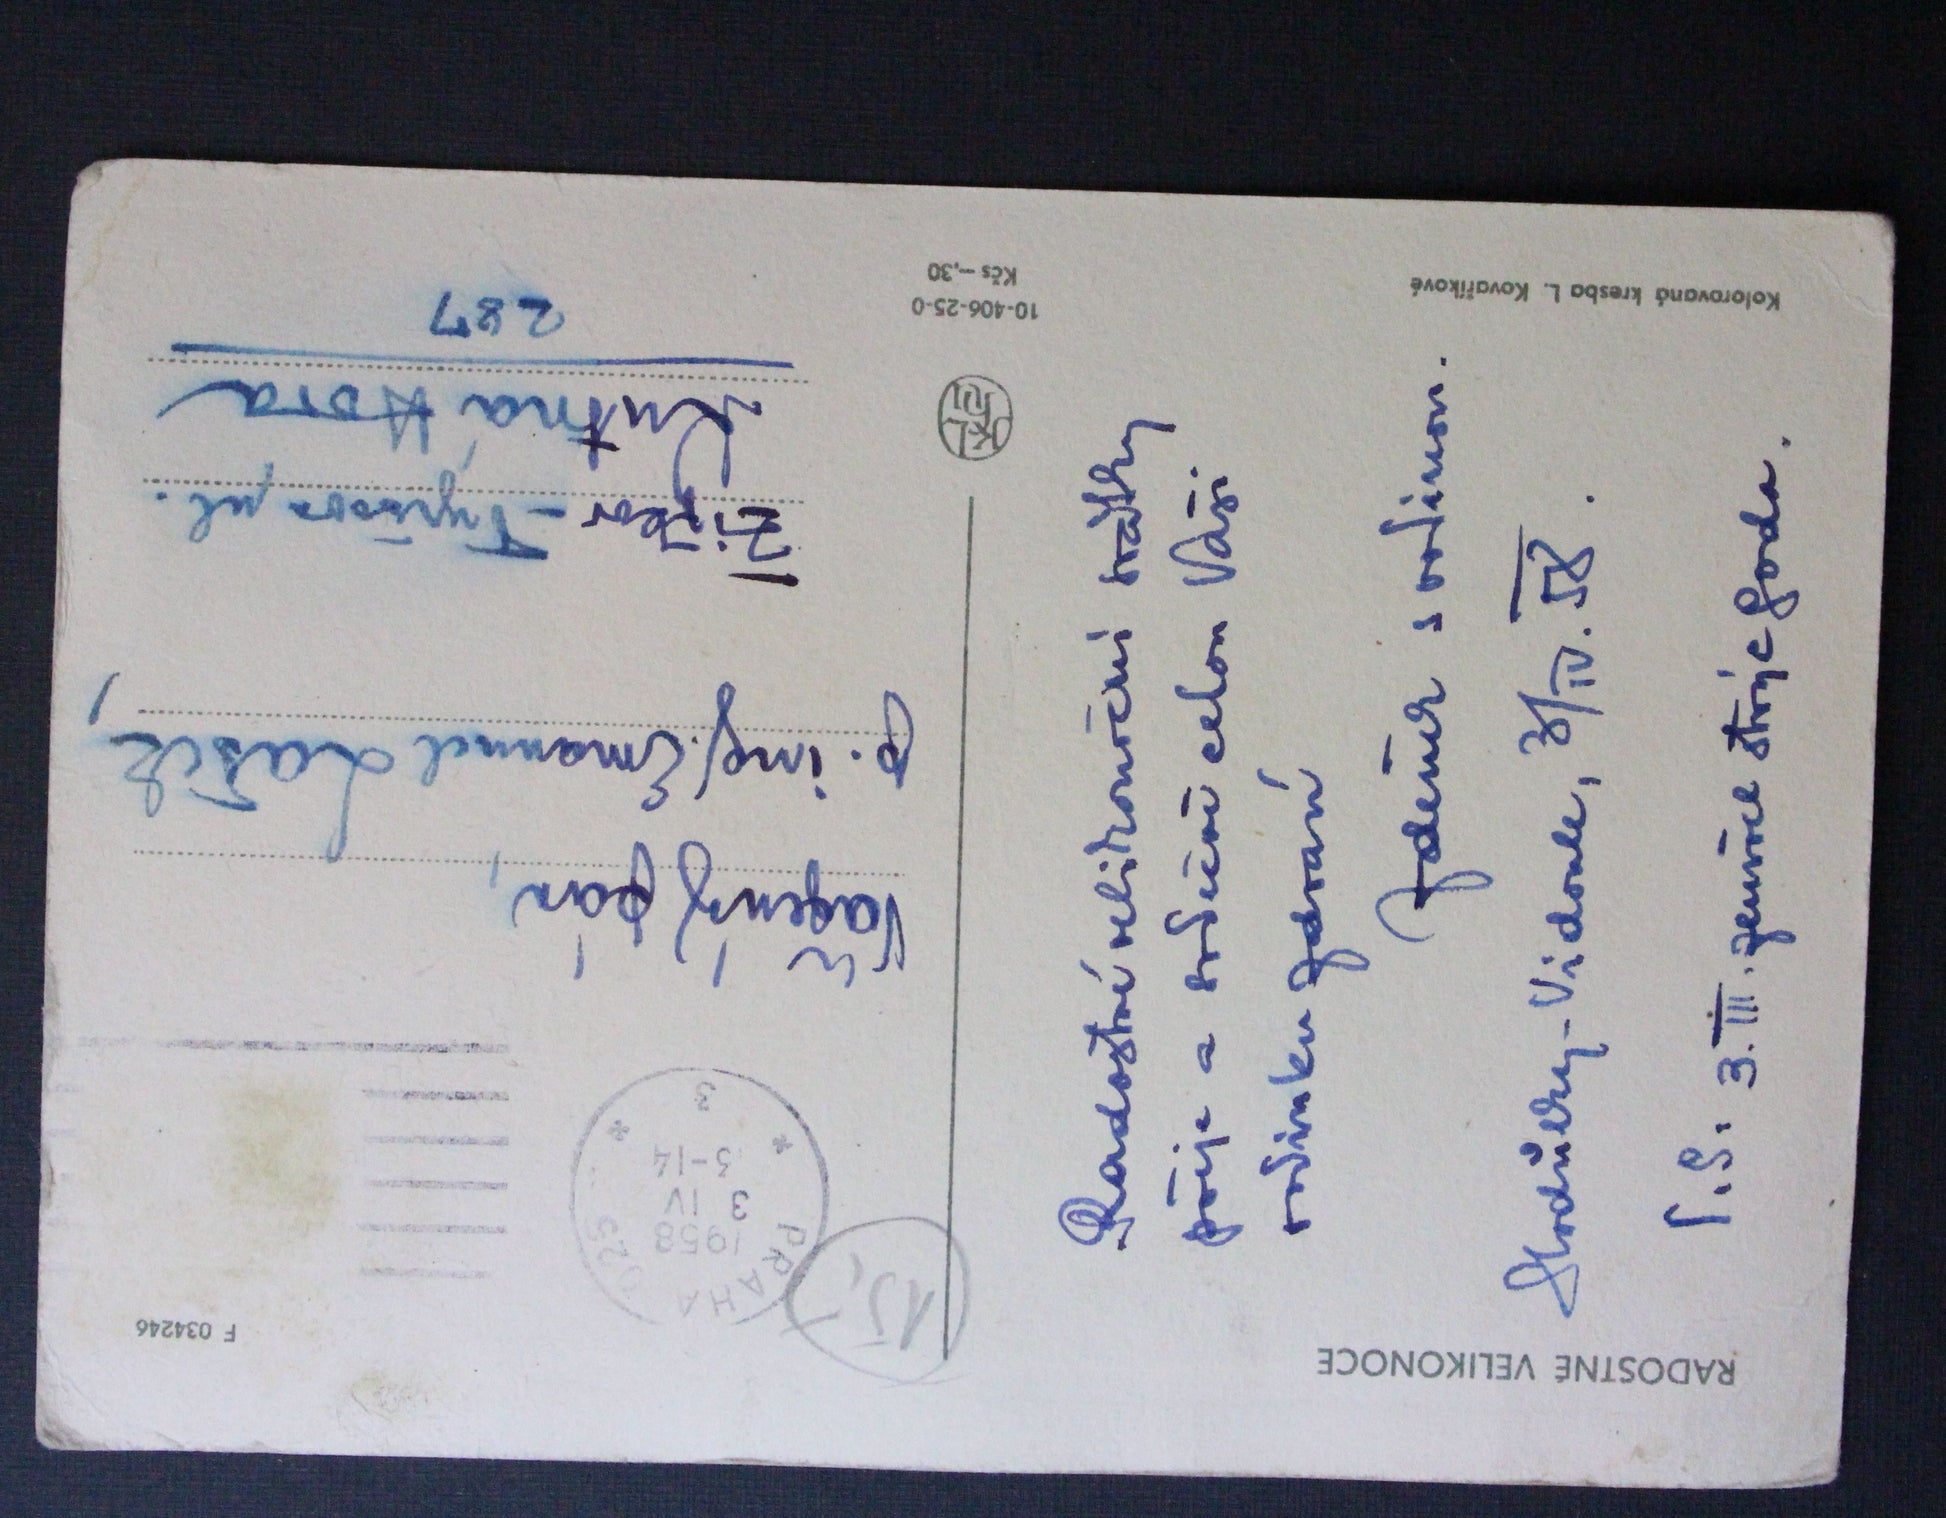 RADOSTNÉ VELIKONOCE
Radostné velikonoční svátky
přeje a srdečně celou Vaši
rodinku zdraví
Zdeněk s rodinou.
Stodůlky-Vidoule, 3/IV. 58.
P.S: 3. III. zemřel strýc Sorda.
Kolorovaná kresba L. Kovaříkové
F 034246
PRAHA 025
1958
3 IV
-14
3
15,-
Vážený pán,
p. ing. Emanuel
Žižkov - Tyršova ul.
Kutná Hora
287
10-406-25-0
Kčs –,30